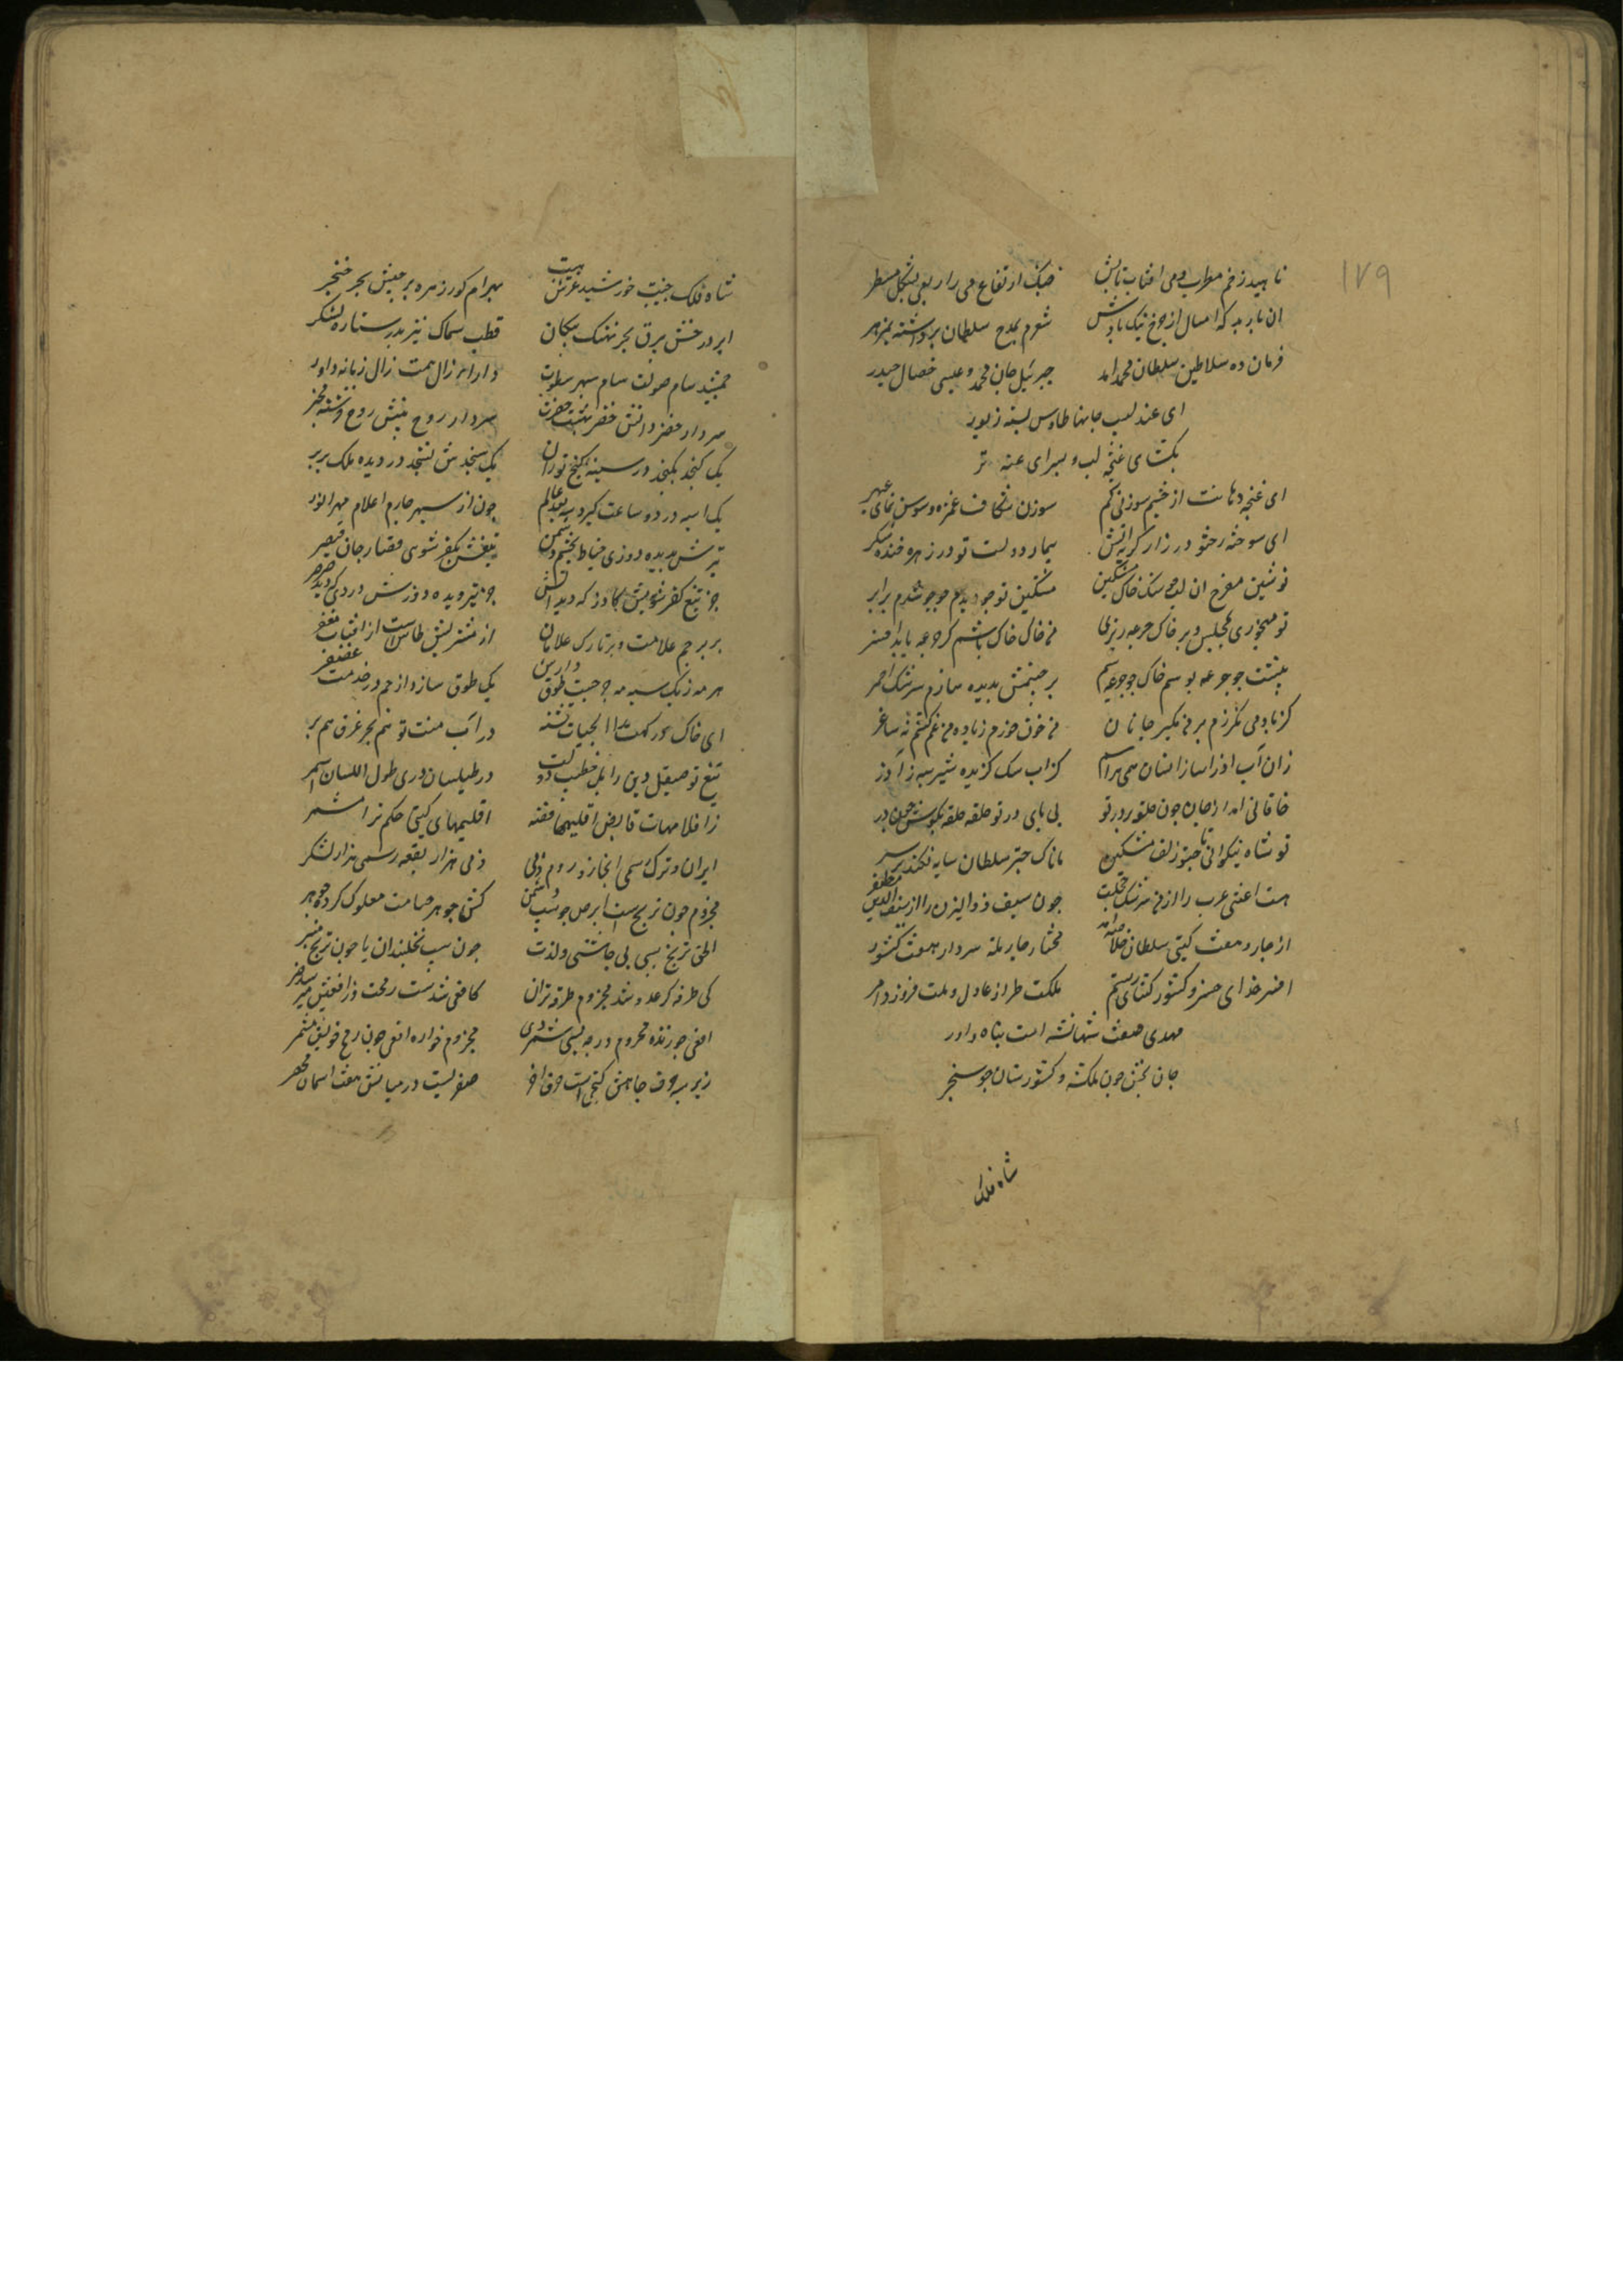 ۱۷۹
ناهید زخم مطرب و می افتاب تابش
ارتفاع می را ربعی بشکل مسطر
ان نار به که امسال از چرخ نیک
شعرم بمدح سلطان برداشته
فرمان ده سلاطین سلطان محمد
جبرئیل جان محمد و عیسی خصال حیدر
ای عندلیب جانها طاوس بسته زیور
بکشای غنچه لب و بسرای تر
ای غنچه دهانت از چشم سوزنی کم
سوزن شکاف غمزه و سوسن نمای عبهر
ای سوخته رخ تو در زار کریه اتش
بیمار دو لبت تو در زهره خنده شکر
نوشین مفرح ان لب جو سنک خال مشکین
مشکین تو جو دیدم جوجو شدم برابر
تو میخوری بمجلس و بر خاک جرعه ریزی
من خاک خاک باشم کز جرعه یابد افسر
پیشت جو جرعه بوسم خاک و جو جرعه
بر چشمش بدیده سازم سرشک احمر
من خون خورم ز باده من غم کشم نه ساغر
زان آب اذراسا زانسان همی هراسم
کز اب سک کزیده شیر سیه ز اذر
خاقانی از جان چون حلقه بر در تو
بی پای در تو حلقه حلقه بکوش جون در
تو شاه نیکوانی تا چتر زلف مشکین
ماناک چتر سلطان سایه فکند بر سر
هست اعشی عرب را از من سرشک خجلت
جون سیف ذو الیزن را از سیف الدین مظفر
از چار و هفت کیتی سلطان
مختار چار ملة سردار هفت کشور
افسر خدای خسرو کشور کشای رستم
ملکت طراز عادل و ملت فروز داور
مهدی صفت شهنشه امت پناه داور
جان بخش جون ملکشه و کشور ستان جو سنجر
شاه فلک
شاه فلک جنیبت خورشید عرش هیبت
بهرام کور زهره برجیس بحر خنجر
ابر درخش بیرق بحر نهنک پیکان
قطب سماک نیزه بدر ستاره لشکر
جمشید سام صولت سام سپهر سطوت
دارای زال همت زال زمانه داور
سردار خضر دانش خضر بهشت حضرت
سردار روح بینش روح فرشته مخبر
یک کنجد نکنجد در سینه کنج توران
یک سنجدش نسنجد در دیده ملک بربر
یک اسبه در دو ساعت کیرد سه بعد عالم
جون از سپهر چارم اعلام مهر انور
تیرش بدیده دوزی خیاط چشم دشمن
تیغش بکفر شوئی قصار جان قیصر
جز تیغ کفر شویش کازر که دید اتش
جز تیر دیده دوزش درزی که دید صرصر
بر پرچم علامت و بر تارک غلامان
از مشتریش طاس است از افتاب مغفر
هر مه ز یک سبه مه
یک طوق سازد از خم در خدمت غضنفر
ای خاک در کهت را اب حیات تشنه
در آب منت تو هم بحر غرق هم بر
تیغ تو صیقل دین را بل خطیب دولت
در طیلسان دری طول اللسان اسمر
زاقلام هات قابض اقلیمهای فتنه
اقلیمهای کیتی حکم ترا مشمر
ایران و ترک سمی ابخاز و روم ذمی
ذمی هزار بقعه رسمی هزار لشکر
مجزوم جون ترنج است ابرص جو سیب دشمن
کش جوهر حسامت معلول کرد جوهر
الحق ترنج سیبی بی چاشنی و لذت
جون سیب نخلبندان یا جون ترنج منبر
کی طرفه کر عدو شد مجزوم طرفه تر ان
کافعی شدست رمحت
افعی خورنده مجزوم ار جه بسی شنیدی
مجزوم خواره افعی جون رمح خویش مشمر
زیر سه حرف جاهش کنجی است حرف اخر
صفریست در میانش هفت اسمان مجوهر